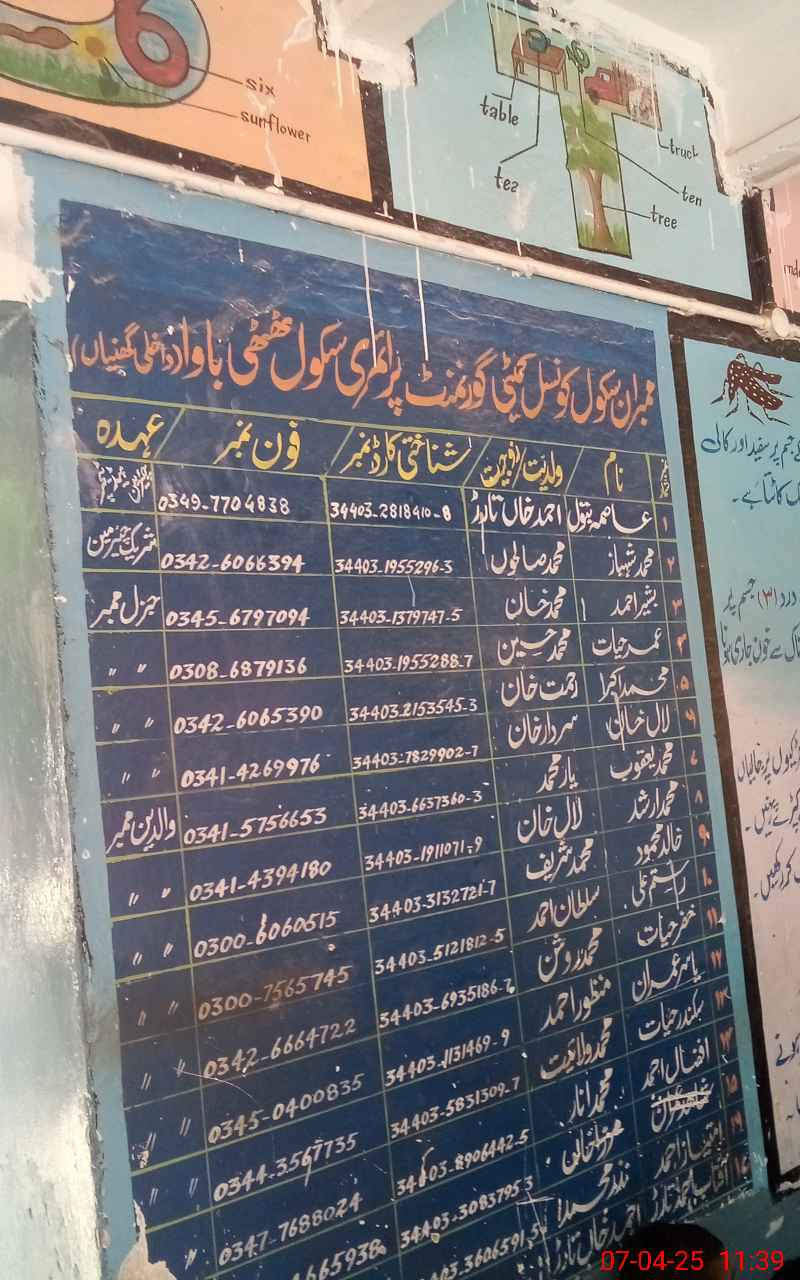 six
sunflower
table
tea
truck
ten
tree
ممبران سکول کونسل کمیٹی گورنمنٹ پرائمری سکول ٹھٹھی باوا (داخلی گھنیاں)
نام ولدیت / زوجیت شناختی کارڈ نمبر فون نمبر عہدہ
۱ عاصمہ بتول احمد خاں تارڑ 34403-2818410-8 0349-7704838
۲ محمد شہباز 34403-1955296-3 0342-6066394 شریک چیئرمین
۳ بشیر احمد محمد خان 34403-1379747-5 0345-6797094 جنرل ممبر
۴ عمر حیات محمد حسین 34403-1955288-7 0308-6879136 〃 〃
۵ محمد اکبر رحمت خان 34403-2153545-3 0342-6065390 〃 〃
۶ لال خان سردار خان 34403-7829902-7 0341-4269976 〃 〃
۷ محمد یعقوب یار محمد 34403-6637360-3 0341-5756653 والدین ممبر
۸ محمد ارشد لال خان 34403-1911071-9 0341-4394180 〃 〃
۹ خالد محمود محمد شریف 34403-3132721-7 0300-6060515 〃 〃
۱۰ رستم علی سلطان احمد 34403-5121812-5 0300-7565745 〃 〃
۱۱ خضر حیات محمد روشن 34403-6935186-7 0342-6664722 〃 〃
۱۲ یاسر عمران منظور احمد 34403-1131469-9 0345-0400835 〃 〃
۱۳ سکندر حیات محمد ولایت 34403-5831509-7 0344-3567735 〃 〃
۱۴ افضال احمد محمد انار 34403-8906442-5 0347-7688024 〃
۱۵ 34403-3083795-3
۱۶ امتیاز احمد نذر محمد
۱۷ آفتاب احمد تارڑ احمد خاں تارڑ
جسم پر سفید اور کالی
درد (۳) جسم پر
ناک سے خون جاری ہونا
07-04-25 11:39